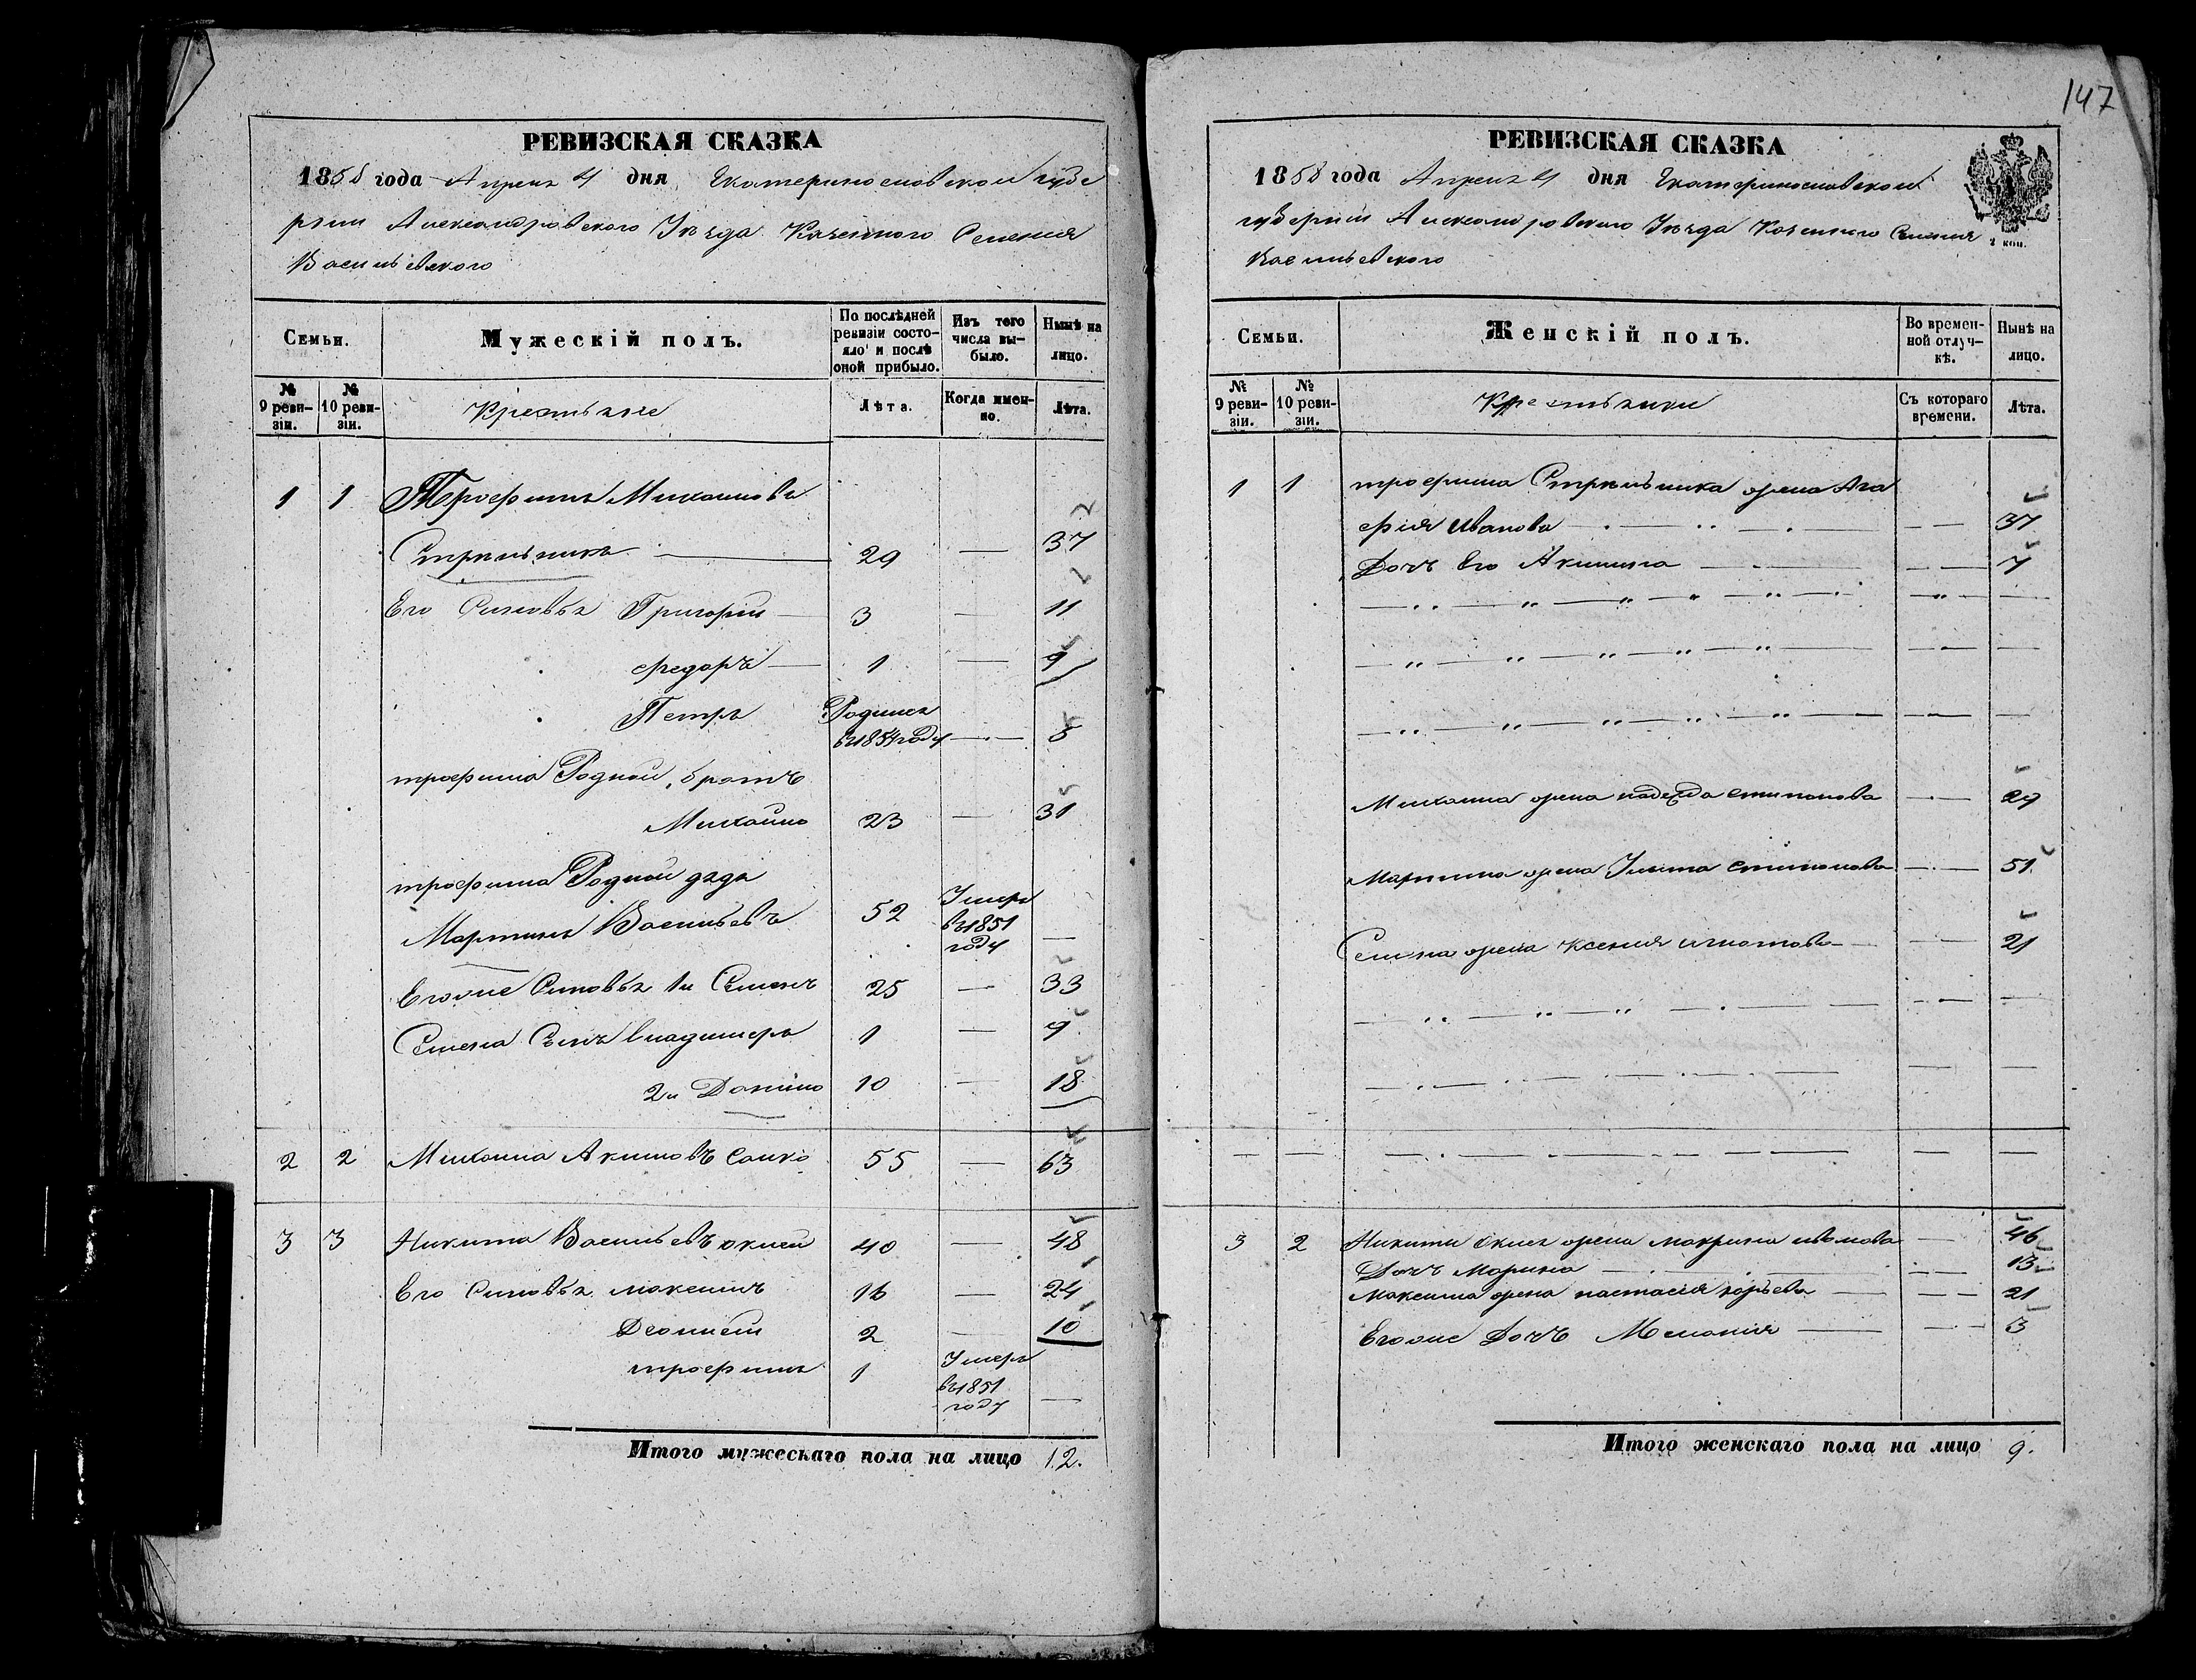 147
РЕВИЗСКАЯ СКАЗКА
1858 года Апреля 4 дня Екатеринославской губе
рнии Александровского Уезда Казенного Селения
Васильевского
Семьи. Мужескій полъ. По послѣдней ревизіи состояло и послѣ оной прибыло. Изъ того числа выбыло. Нынѣ на лицо.
№ 9 ревизіи. № 10 ревизіи. Крестьяне Лѣта. Когда именно. Лѣта.
1 1 Трофимъ Михаиловъ
Стрельникъ 29 — 37
Его Синовья Григорий 3 — 11
Федоръ 1 — 9
Петръ Родился въ 1854 году — 5
трофима Родной братъ
Михайло 23 — 31
трофима Родной дядя
Мартинъ Васильевъ 52 Умеръ въ 1851 году —
Егоже Синовья 1й Семенъ 25 — 33
Семена Сынъ владимеръ 1 — 9
2й Данило 10 — 18
2 2 Михаила Акимовъ 55 — 63
3 3 Никита Васильевъ 40 — 48
Его Синовья максимъ 16 — 24
Деонисий 2 — 10
трофимъ 1 Умеръ въ 1851 году —
Итого мужескаго пола на лицо 12.
РЕВИЗСКАЯ СКАЗКА
1858 года Апреля 4 дня Екатеринославской
губернии Александровского Уезда Казенного Селения
Васильевского
2 коп.
Семьи. Женскій полъ. Во временной отлучкѣ. Нынѣ на лицо.
№ 9 ревизіи. № 10 ревизіи. Крестьянки Съ котораго времени. Лѣта.
1 1 трофима Стрельника жена Ага
фия Иванова — 37
Дочь Его Акилина — 7
Михаила жена надежда степанова — 29
Мартина жена Улита степанова — 51
Семена жена Ксения игнатова — 21
3 2 Никити жена макрина иванова — 46
Дочь Марина — 13
Максима жена настасия — 21
Егоже Дочь Мелания — 3
Итого женскаго пола на лицо 9.